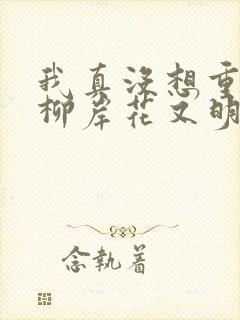 我真没想重
柳岸花又明
念执着